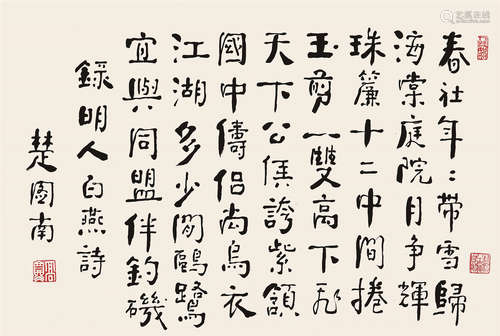 春社年〻帶雪歸
海棠庭院月爭輝
珠簾十二中間捲
玉剪一雙高下飛
天下公侯誇紫頷
國中儔侶尚烏衣
江湖多少閒鷗鷺
宜與同盟伴釣磯
錄明人白燕詩
楚圖南